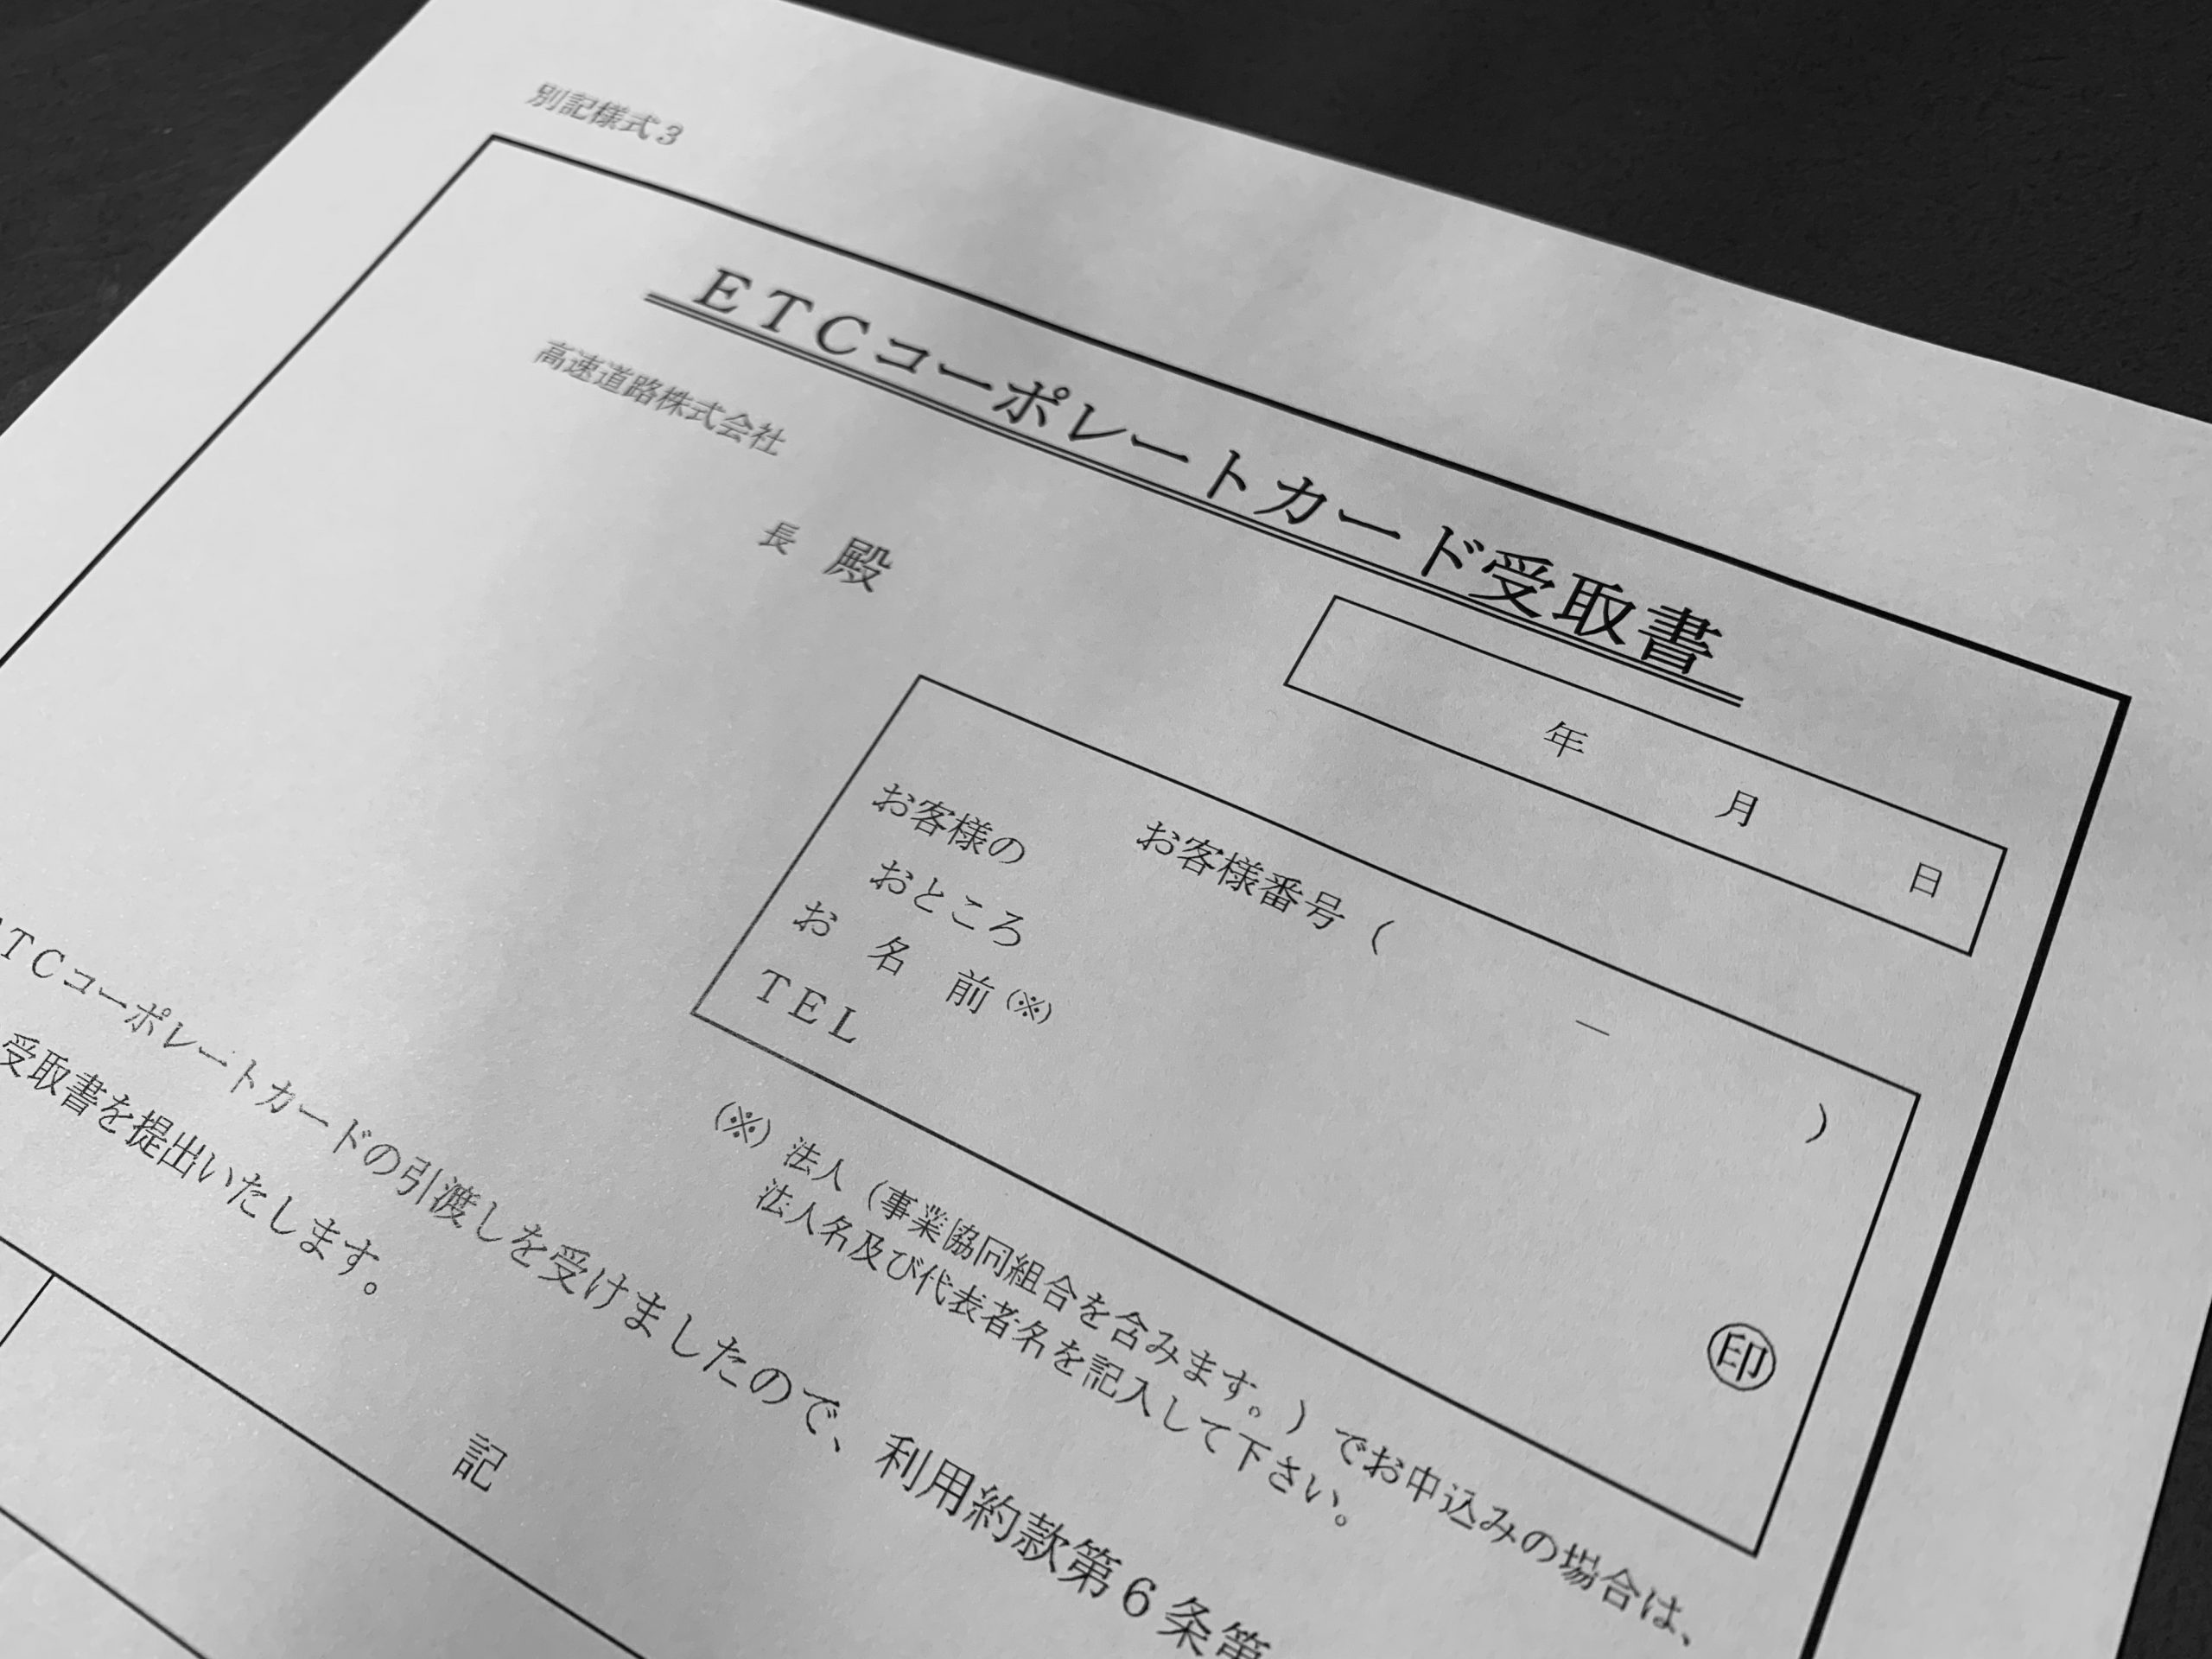 別記様式3
ETCコーポレートカード受取書
高速道路株式会社
長 殿
年 月 日
お客様の お客様番号 ( － )
おところ
お 名 前 (※) ㊞
TEL
(※) 法人（事業協同組合を含みます。）でお申込みの場合は、
法人名及び代表者名を記入して下さい。
TCコーポレートカードの引渡しを受けましたので、利用約款第6条第
受取書を提出いたします。
記